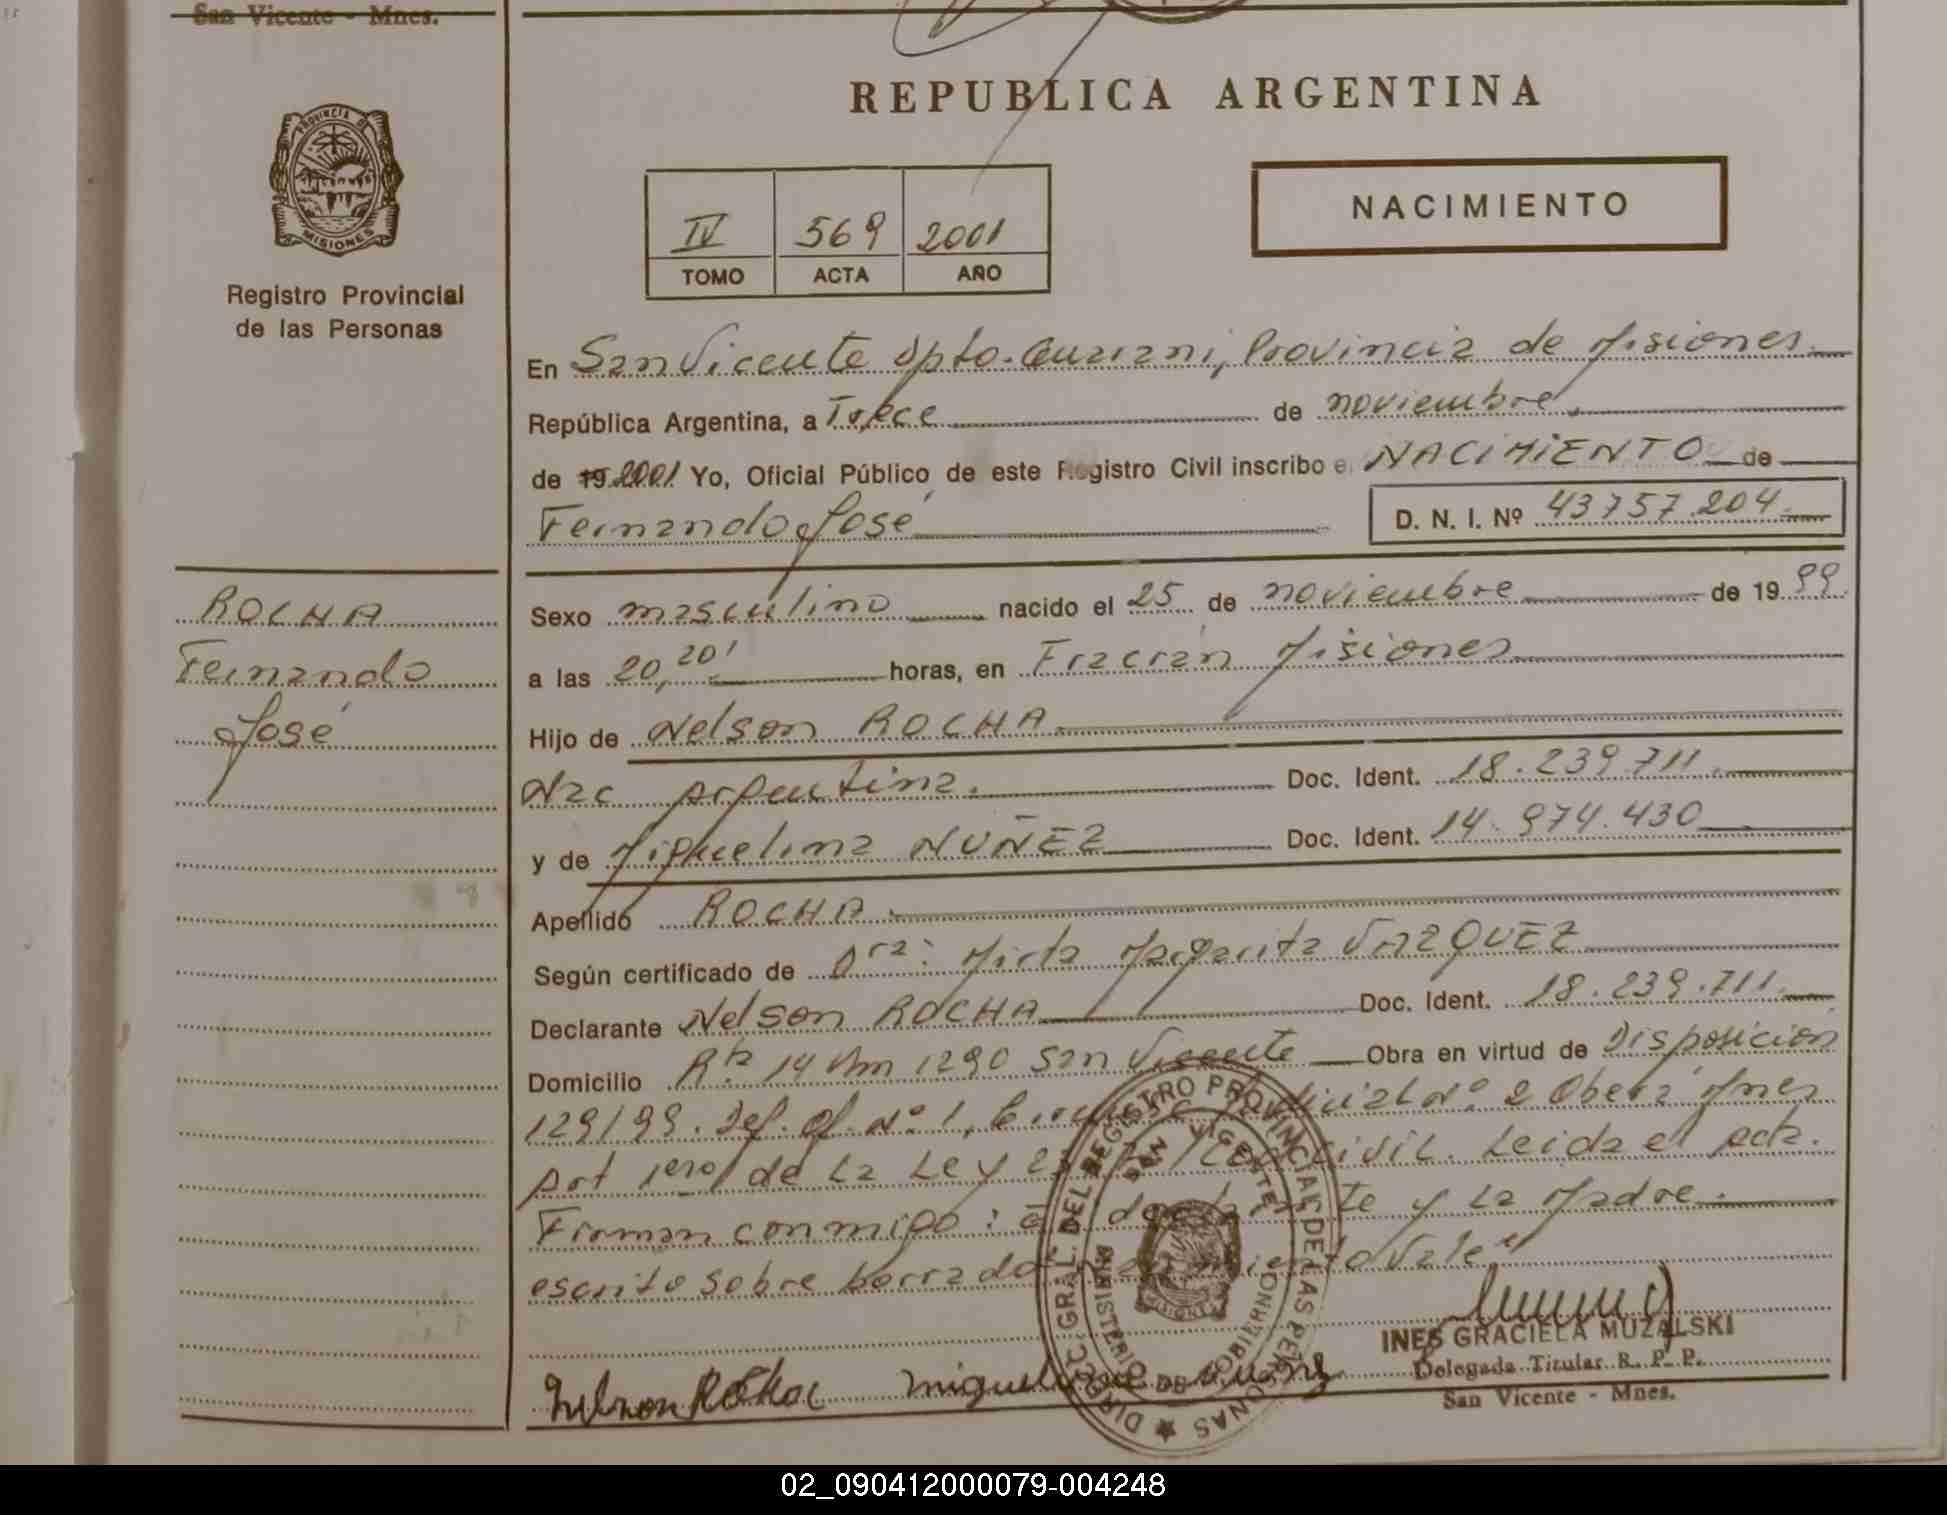 San Vicente - Mnes.
REPUBLICA ARGENTINA
PROVINCIA DE
MISIONES
IV 569 2001
TOMO ACTA AÑO
NACIMIENTO
Registro Provincial
de las Personas
En San Vicente Dpto. Guaraní, Provincia de Misiones
República Argentina, a Trece de noviembre
de 19 2001 Yo, Oficial Público de este Registro Civil inscribo e NACIMIENTO de
Fernando José D. N. I. Nº 43757.204
ROCHA
Fernando
José
Sexo masculino nacido el 25 de noviembre de 1999
a las 20,20' horas, en Fracrán Misiones
Hijo de Nelson ROCHA
Nac Argentina. Doc. Ident. 18.239.711
y de Miguelina NUÑEZ Doc. Ident. 14.974.430
Apellido ROCHA
Según certificado de Dra: Mirta Margarita VAZQUEZ
Declarante Nelson ROCHA Doc. Ident. 18.239.711
Domicilio Rta 14 Km 1290 San Vicente Obra en virtud de Disposición
129/99. Def. Of. Nº 1, Nº 2 Oberá Mnes
Art 1ero de La Ley Civil. Leida el Acta.
Firman conmigo: el declarante y La Madre.
escrito sobre borrado Vale"
DIRECC. GRAL. DEL REGISTRO PROVINCIAL DE LAS PERSONAS
SAN VICENTE
MINISTERIO DE GOBIERNO
MISIONES
INES GRACIELA MUZALSKI
Delegada Titular R. P. P.
San Vicente - Mnes.
Nelson Rocha
02_090412000079-004248